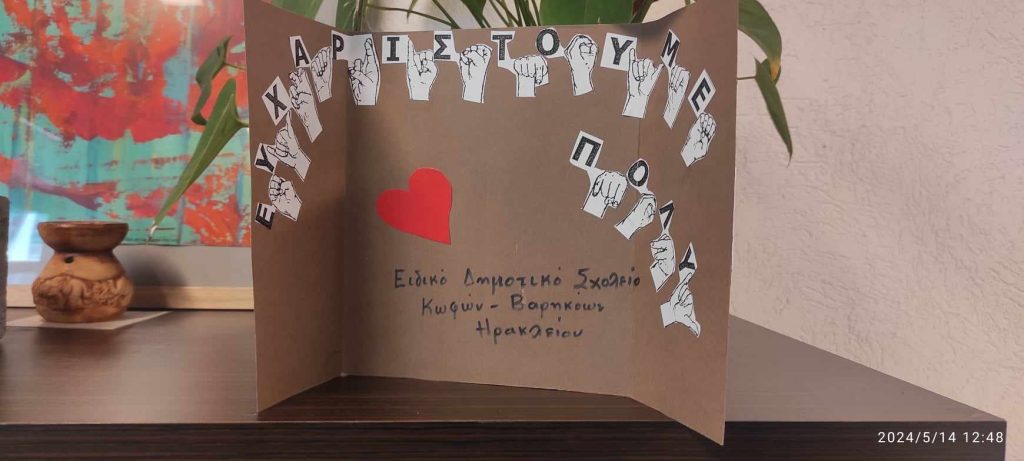 ΕΥΧΑΡΙΣΤΟΥΜΕ
ΠΟΛΥ
Ειδικό Δημοτικό Σχολείο
Κωφών - Βαρηκόων
Ηρακλείου
2024/5/14 12:48